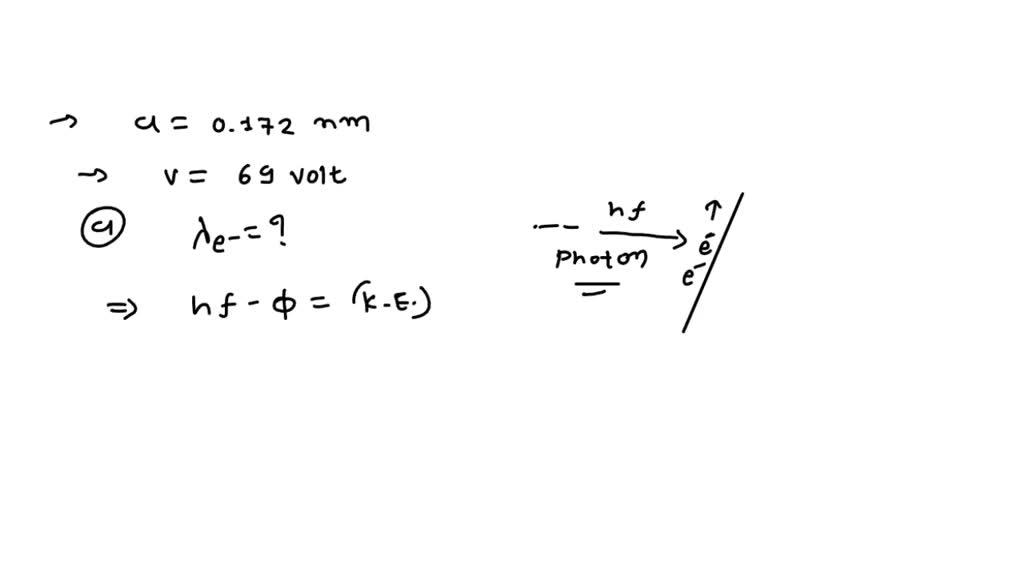 → a = 0.172 nm
→ v = 69 volt
ⓐ λe- = ?
⇒ hf - ϕ = (K.E.)
hf
photon
e-
e-